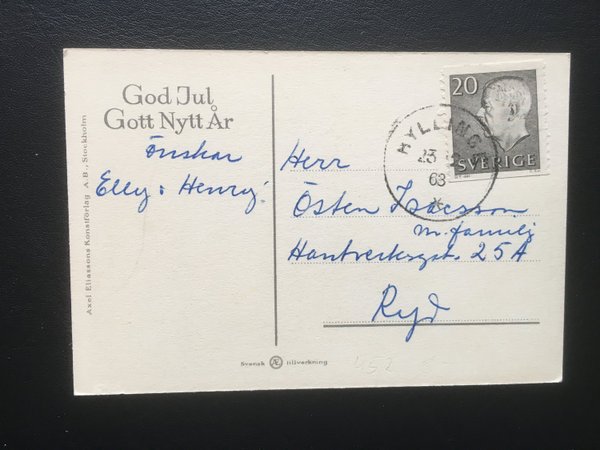 God Jul
Gott Nytt År
önskar
Elly & Henry!
Axel Eliassons Konstförlag A.B., Stockholm
20
SVERIGE
HYLLINGE
23
63
*
Herr
Östen Isacsson
m. familj
Hantverksgt. 25A
Ryd
Svensk Æ tillverkning